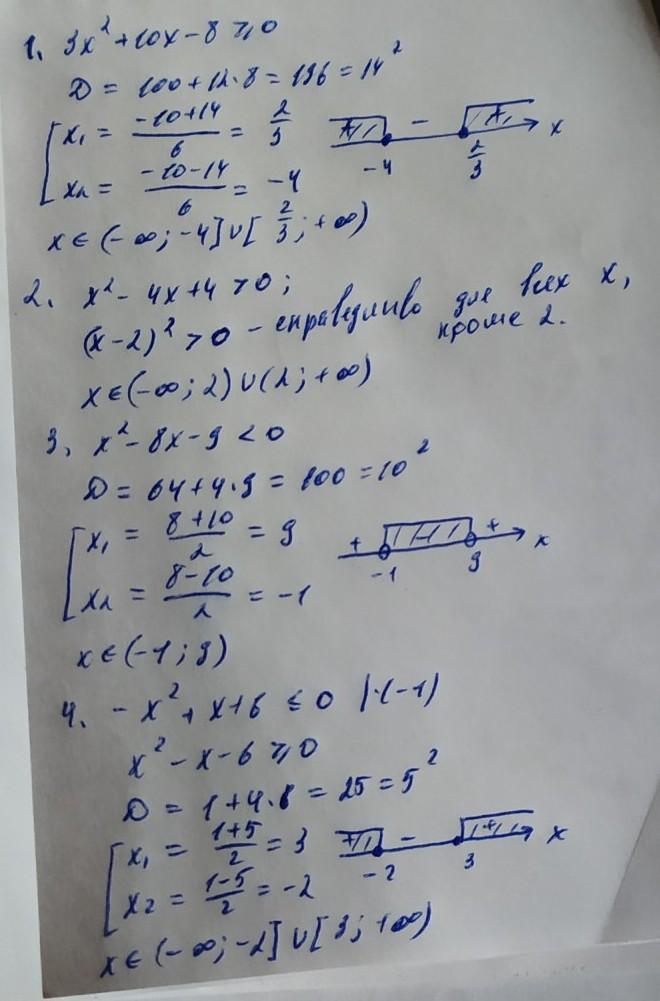 1. 3x² + 10x - 8 ≥ 0
D = 100 + 12·8 = 196 = 14²
[ x₁ = (-10+14)/6 = 2/3
+ - + x
-4 2/3
x₂ = (-10-14)/6 = -4
x ∈ (-∞; -4] ∪ [2/3; +∞)
2. x² - 4x + 4 > 0;
(x-2)² > 0 - справедливо для всех x,
кроме 2.
x ∈ (-∞; 2) ∪ (2; +∞)
3. x² - 8x - 9 < 0
D = 64 + 4·9 = 100 = 10²
[ x₁ = (8+10)/2 = 9
+ - + x
-1 9
x₂ = (8-10)/2 = -1
x ∈ (-1; 9)
4. -x² + x + 6 ≤ 0 |·(-1)
x² - x - 6 ≥ 0
D = 1 + 4·6 = 25 = 5²
[ x₁ = (1+5)/2 = 3
+ - + x
-2 3
x₂ = (1-5)/2 = -2
x ∈ (-∞; -2] ∪ [3; +∞)